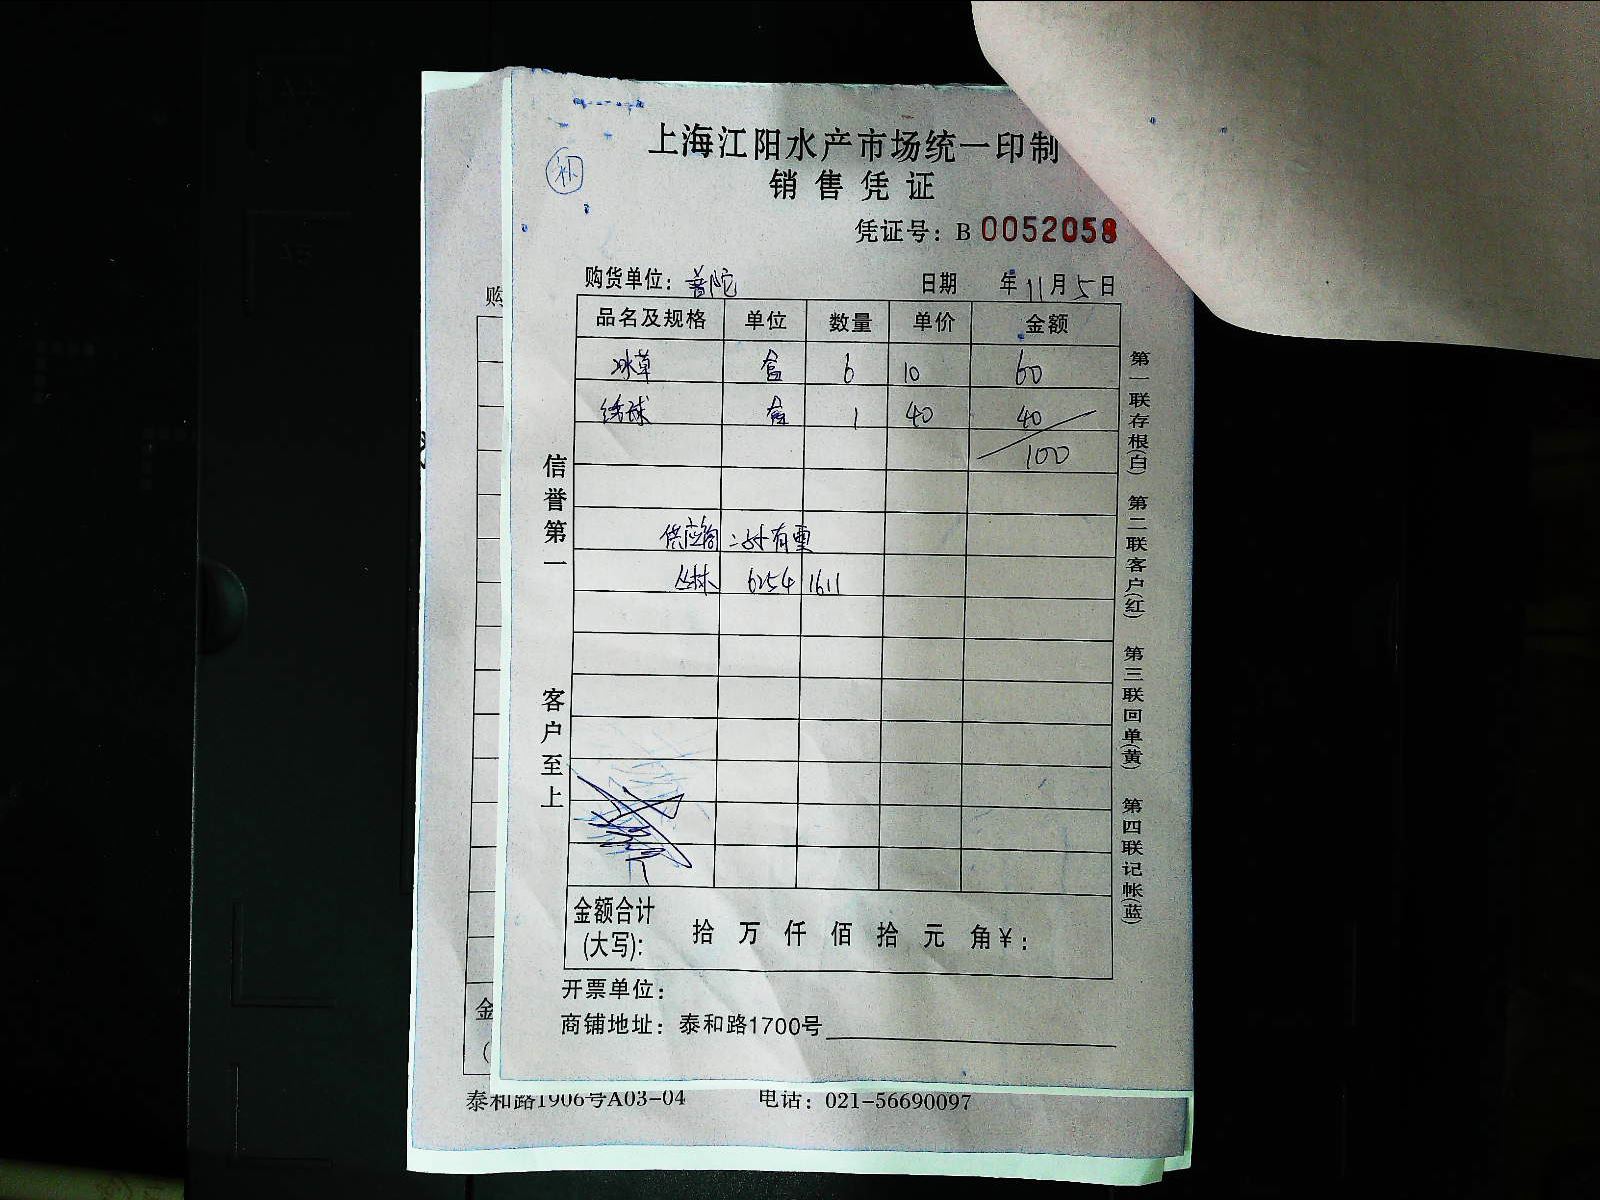 上海江阳水产市场统一印制
补
销售凭证
凭证号：B 0052058
购货单位：普陀 日期 年11月5日
品名及规格 单位 数量 单价 金额
冰草 盒 6 10 60
绣球 盒 1 40 40
100
供应商 二才有票
丛林 6254 1611
信誉第一
客户至上
第一联存根(白) 第二联客户(红) 第三联回单(黄) 第四联记帐(蓝)
金额合计(大写): 拾 万 仟 佰 拾 元 角 ¥:
开票单位：
商铺地址：泰和路1700号
购
金
泰和路1906号A03-04 电话：021-56690097